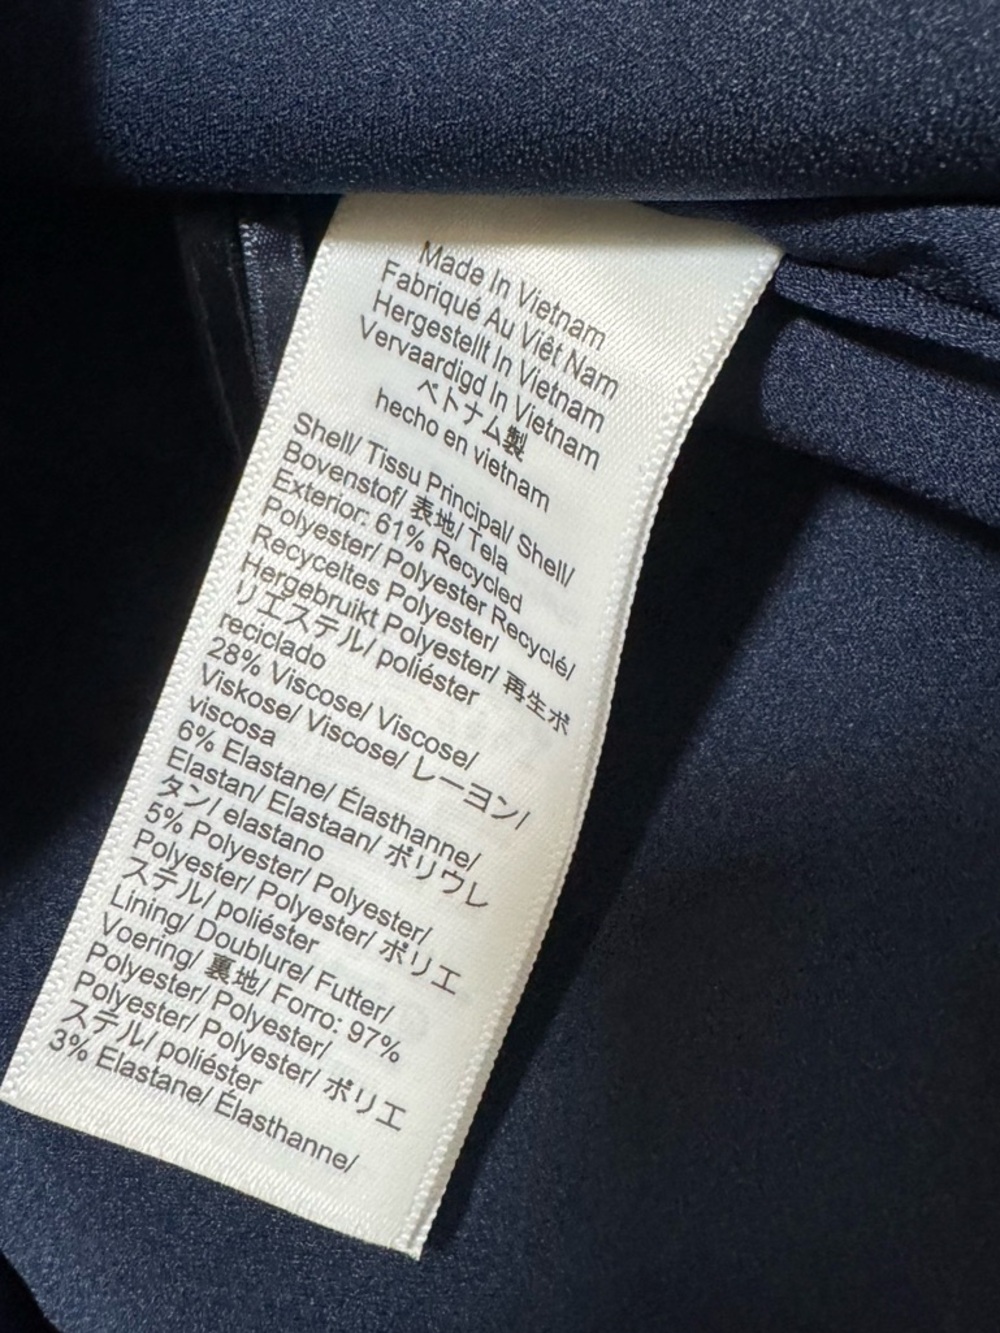 Made In Vietnam
Fabriqué Au Viêt Nam
Hergestellt In Vietnam
Vervaardigd In Vietnam
ベトナム製
hecho en vietnam
Shell/ Tissu Principal/ Shell/
Bovenstof/ 表地/ Tela
Exterior: 61% Recycled
Polyester/ Polyester Recyclé/
Recyceltes Polyester/
Hergebruikt Polyester/ 再生ポ
リエステル/ poliéster
reciclado
28% Viscose/ Viscose/
Viskose/ Viscose/ レーヨン/
viscosa
6% Elastane/ Élasthanne/
Elastan/ Elastaan/ ポリウレ
タン/ elastano
5% Polyester/ Polyester/
Polyester/ Polyester/ ポリエ
ステル/ poliéster
Lining/ Doublure/ Futter/
Voering/ 裏地/ Forro: 97%
Polyester/ Polyester/
Polyester/ Polyester/ ポリエ
ステル/ poliéster
3% Elastane/ Élasthanne/